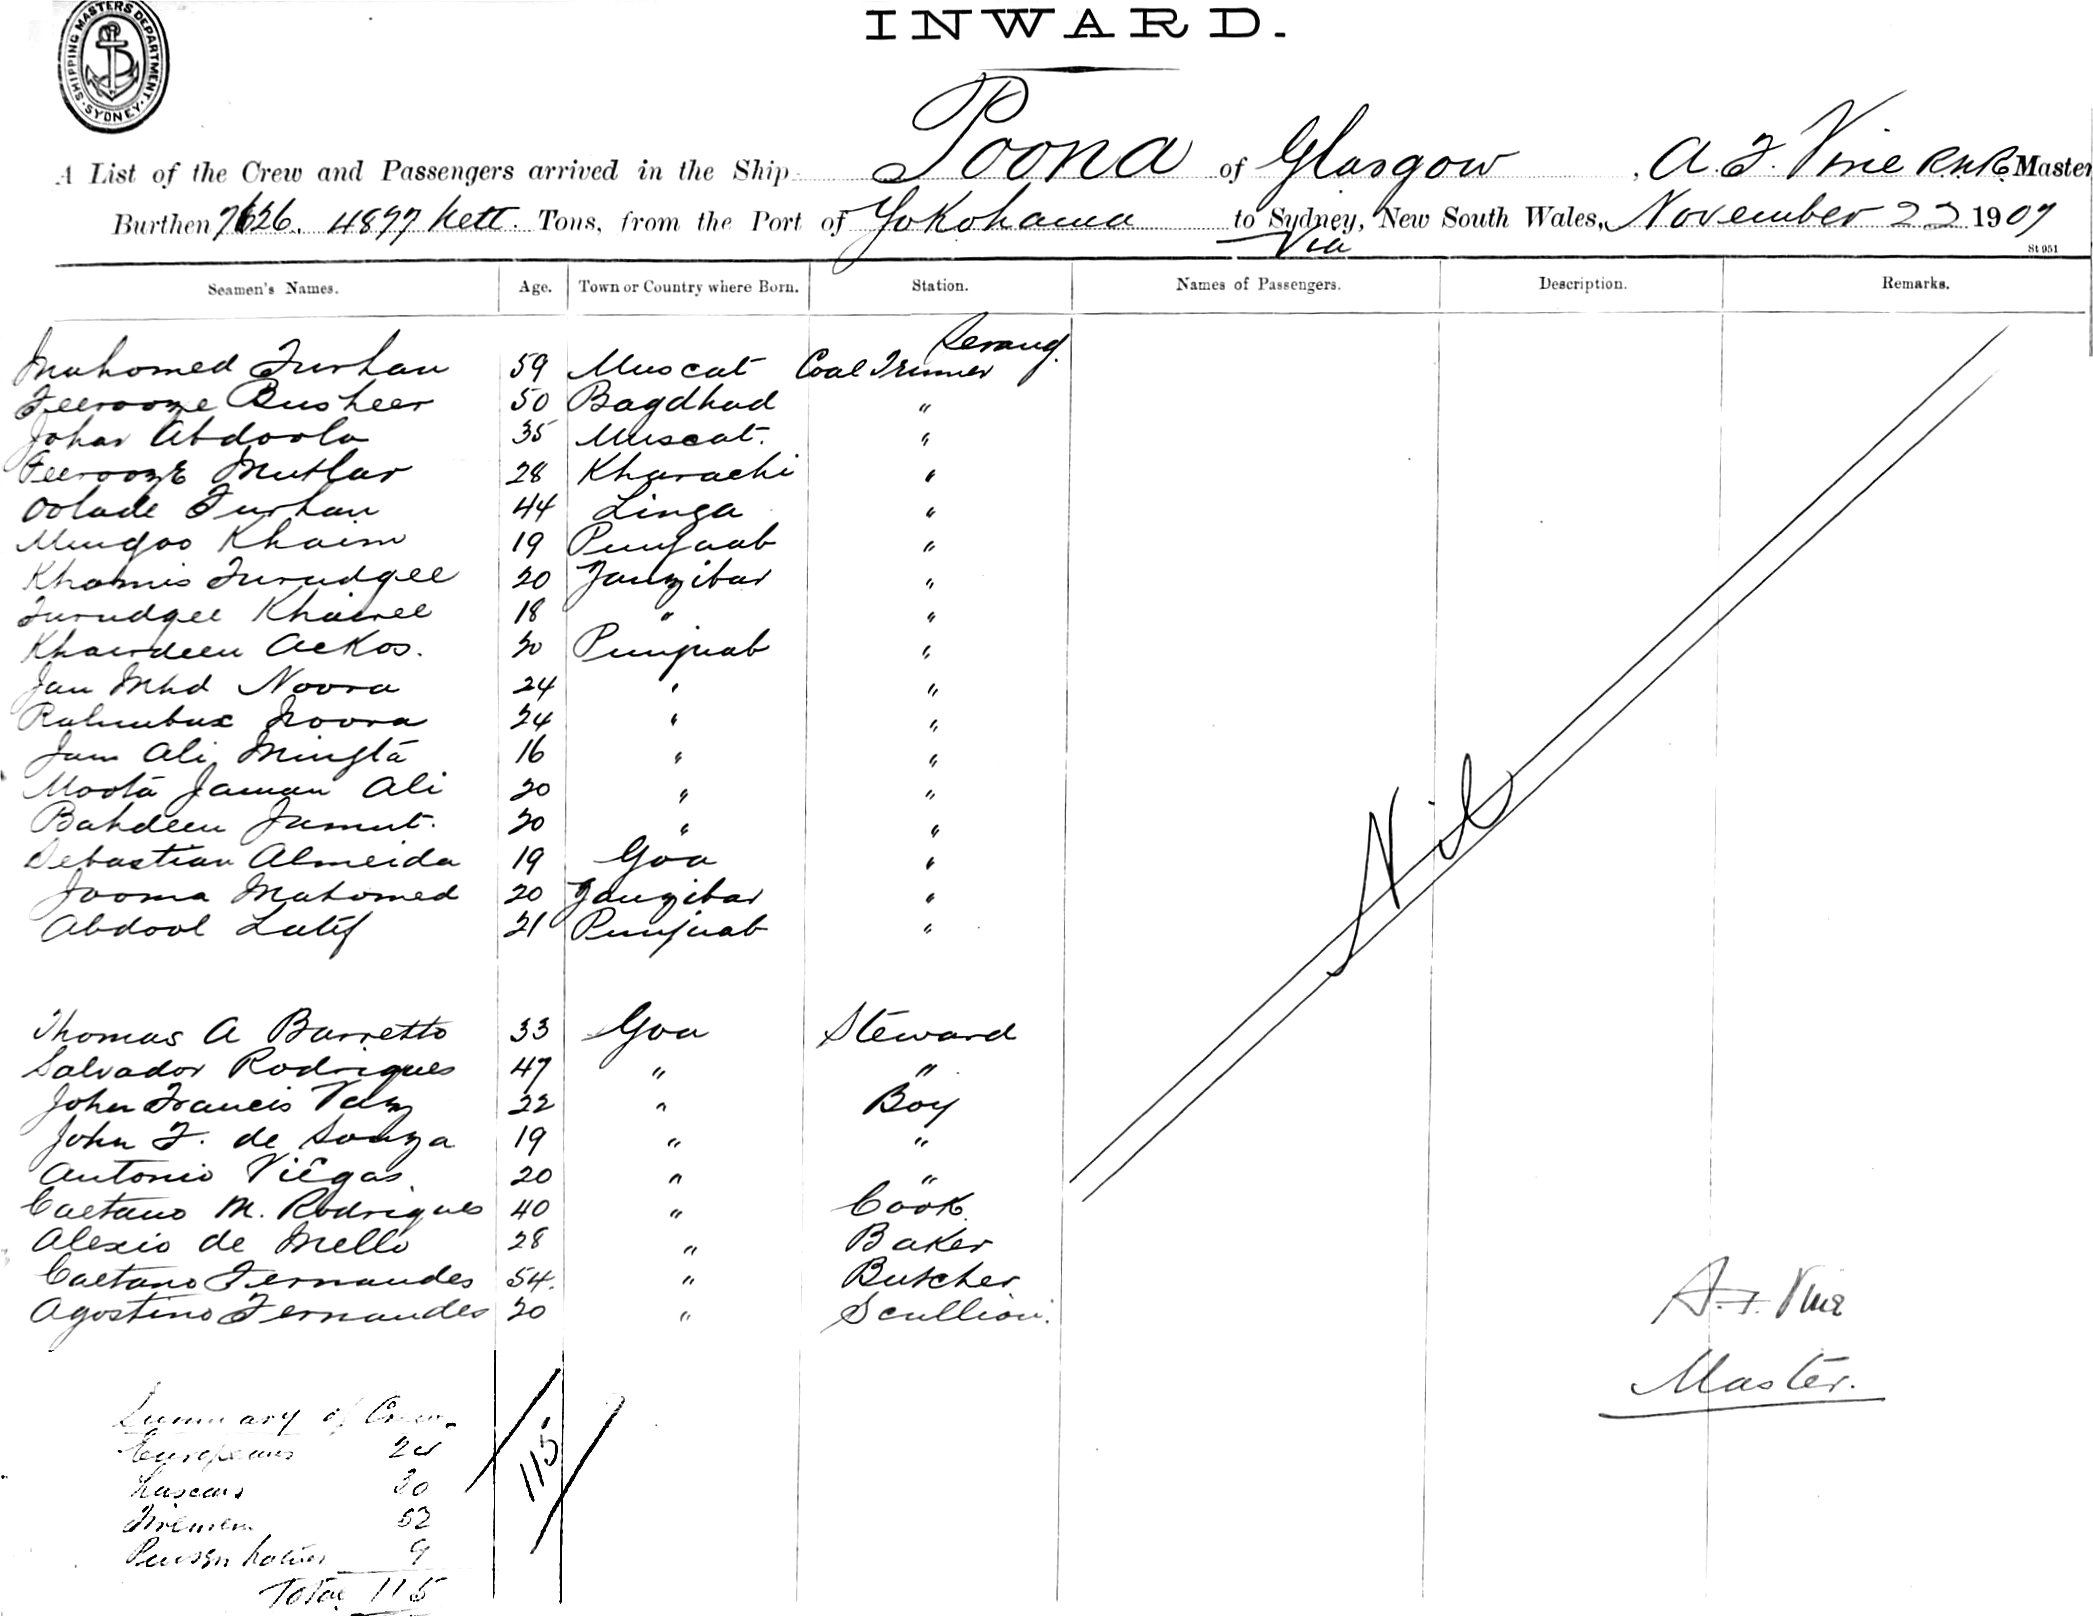 SHIPPING MASTERS DEPARTMENT. SYDNEY.
INWARD.
A List of the Crew and Passengers arrived in the Ship Poona of Glasgow, A. F. Vine R.N.R. Master
Burthen 7626. 4877 Nett. Tons, from the Port of Yokohama to Sydney, New South Wales, November 22 1907
Via
St 951
Seamen's Names. Age. Town or Country where Born. Station. Names of Passengers. Description. Remarks.
Serang
Mahomed Furhan 59 Muscat Coal Trimmer
Feerooze Busheer 50 Bagdhad "
Johar Abdoola 35 Muscat. "
Feerooze Mutlar 28 Kharachi "
Oolade Furhan 44 Linga "
Mungoo Khaim 19 Punjaab "
Khamis Furudgee 20 Zanzibar "
Furudgee Khairee 18 " "
Khairdeen Ackos. 20 Punjaab "
Jan Mhd Noora 24 " "
Rahmbux Noora 24 " "
Jam Ali Mingta 16 " "
Moota Jaman Ali 20 " "
Bahdeen Jumut. 20 " "
Sebastian Almeida 19 Goa "
Jooma Mahomed 20 Zanzibar "
Abdool Latif 21 Punjaab "
Nil
Thomas A Barretto 33 Goa Steward
Salvador Rodrigues 47 " "
John Francis Vaz 22 " Boy
John F. de Souza 19 " "
Antonio Viegas 20 " "
Caetano M. Rodrigues 40 " Cook.
Alexio de Mello 28 " Baker
Caetano Fernandes 54. " Butcher
Agostino Fernandes 20 " Scullion.
A. F. Vine
Master.
Summary of Crew.
Europeans 24
Lascars 30
Firemen 52
9
Total 115
115